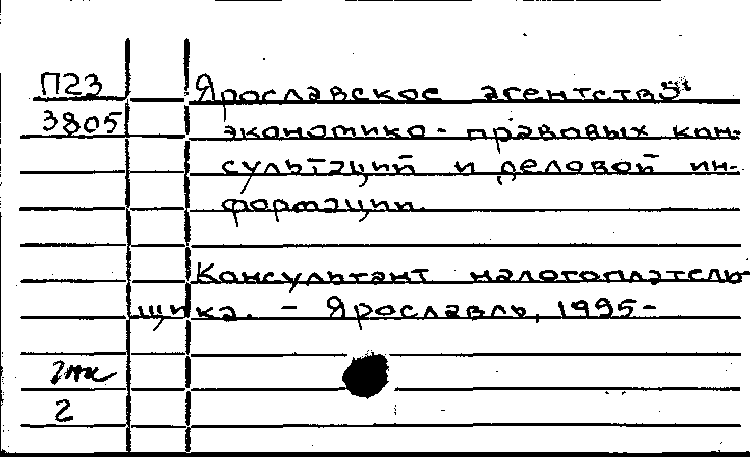 П23 Ярославское агентство
3805 экономико-правовых кон-
сультаций и деловой ин-
формации.
Консультант налогоплатель-
щика. - Ярославль, 1995-
2